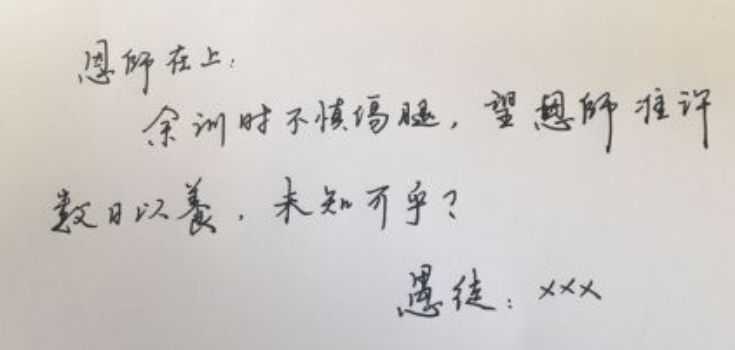 恩师在上：
余训时不慎伤腿，望恩师准许
数日以养，未知可乎？
愚徒：xxx